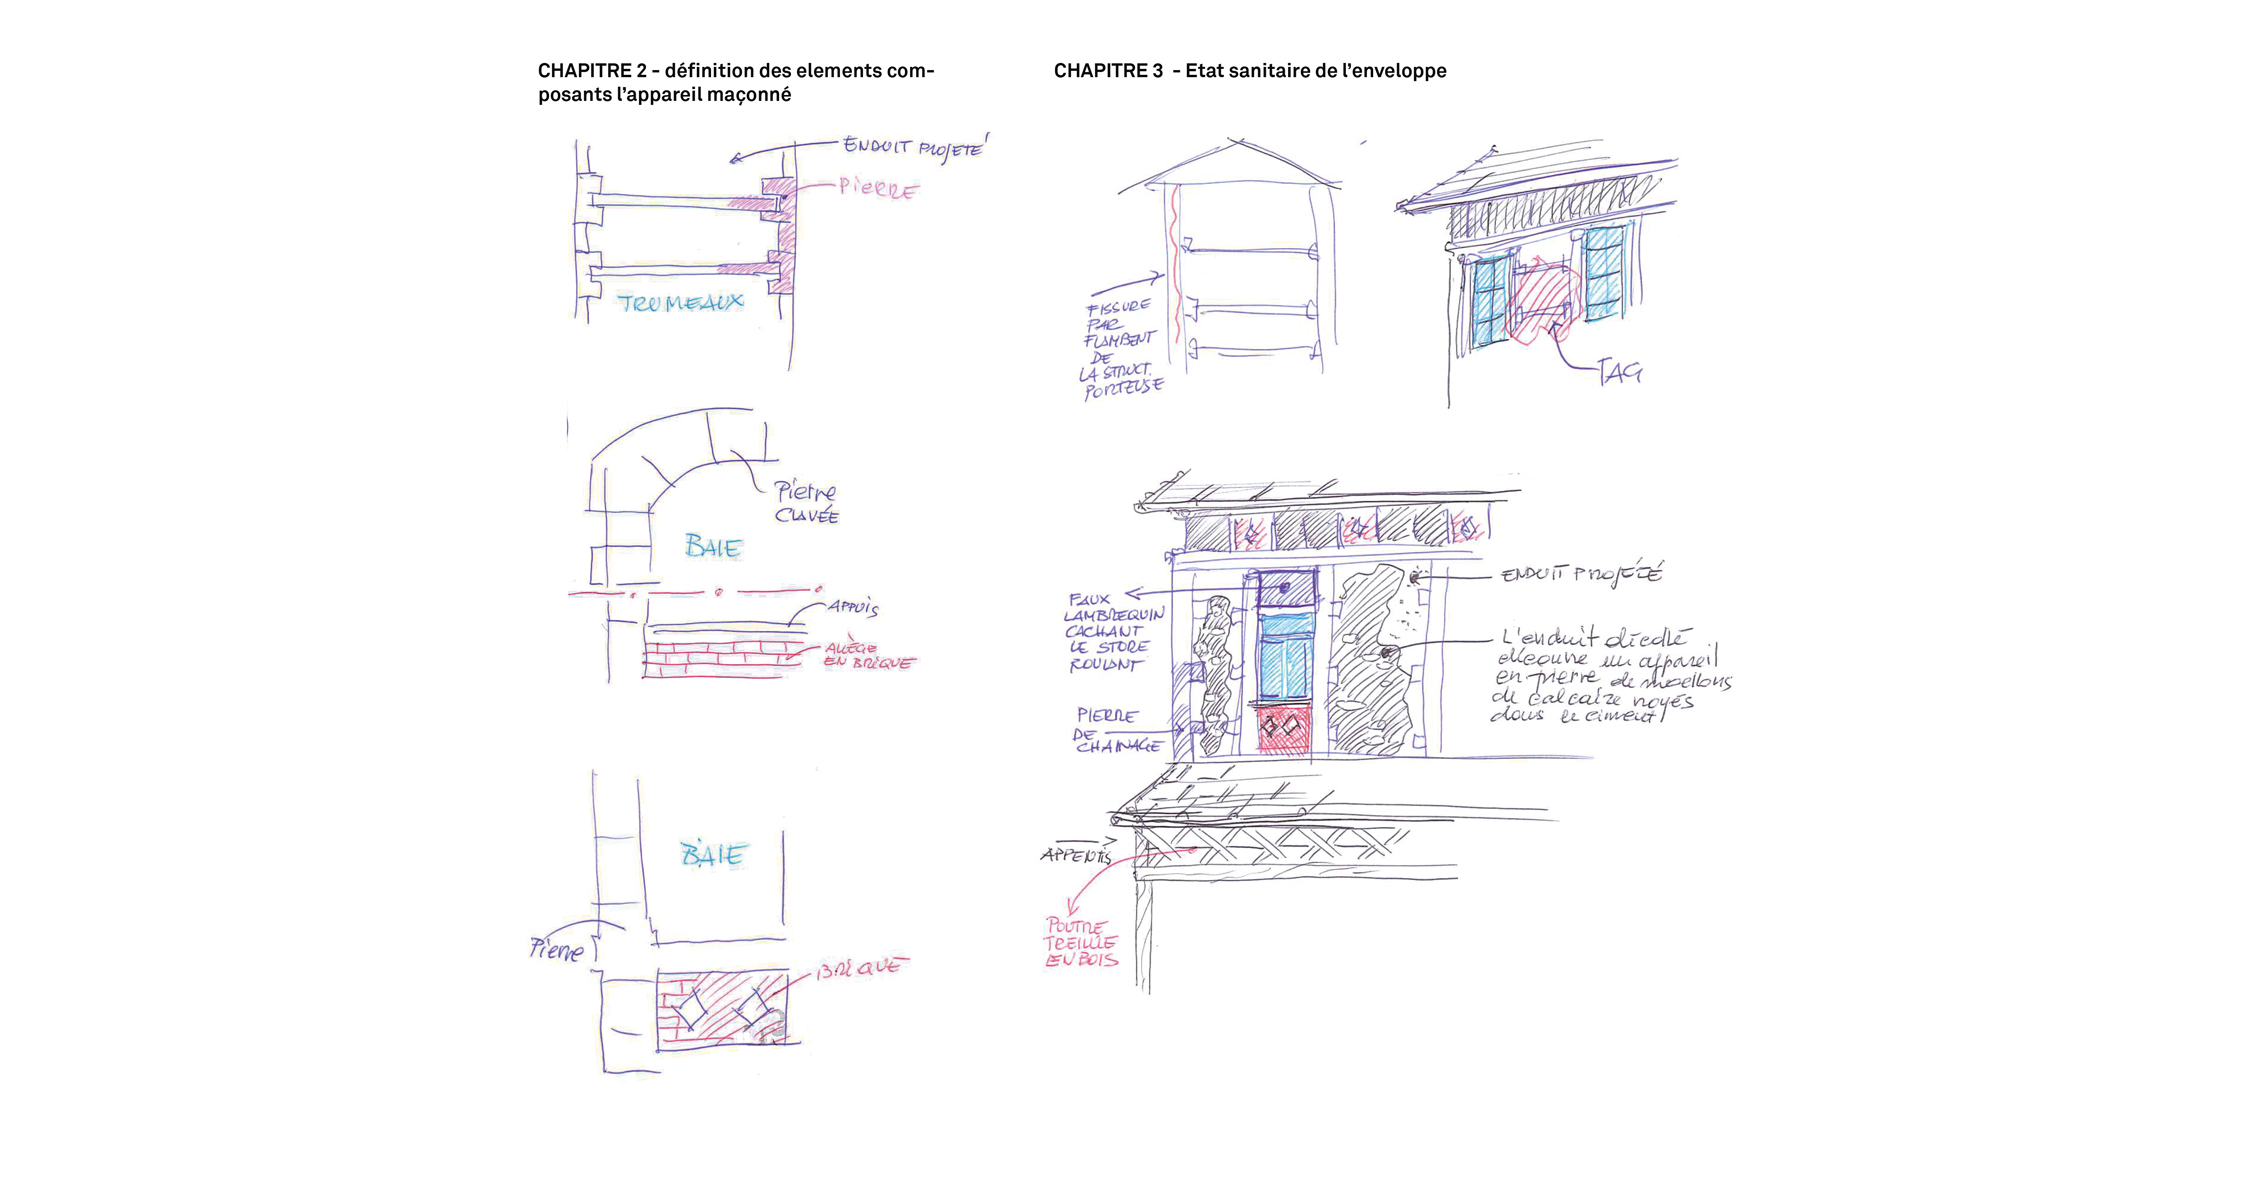 CHAPITRE 2 - définition des elements com-
posants l'appareil maçonné
ENDUIT PROJETÉ
PIERRE
TRUMEAUX
Pierre
CLAVÉE
BAIE
APPUIS
ALLÈGE
EN BRIQUE
BAIE
Pierre
BRIQUE
CHAPITRE 3 - Etat sanitaire de l'enveloppe
FISSURE
PAR
FLAMBENT
DE
LA STRUCT.
PORTEUSE
TAG
FAUX
LAMBREQUIN
CACHANT
LE STORE
ROULANT
PIERRE
DE
CHAINAGE
ENDUIT PROJÉTÉ
L'enduit décollé
découvre un appareil
en pierre de moellons
de calcaire noyés
dans le ciment
APPENTIS
POUTRE
TREILLIE
EN BOIS